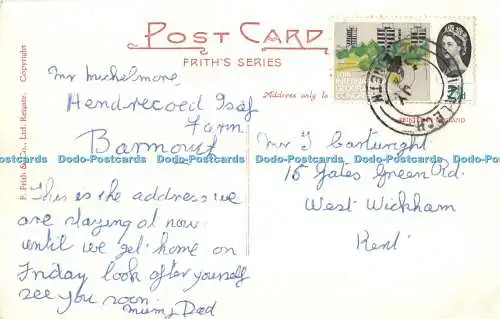 POST CARD
FRITH'S SERIES
Address only to
F. Frith & Co., Ltd. Reigate. Copyright
20TH INTERNATIONAL
GEOGRAPHICAL
CONGRESS
Mr Michelmore,
Hendrecoed Isaf
Farm
Barmouth
This is the address we
are staying at now.
until we get home on
Friday look after yourself
see you soon.
Mum & Dad
Mr J Cartwright
15 Gates Green Rd.
West Wickham
Kent
Dodo-Postcards Dodo-Postcards Dodo-Postcards Dodo-Postcards Dodo-Postcards Dodo-Postcards